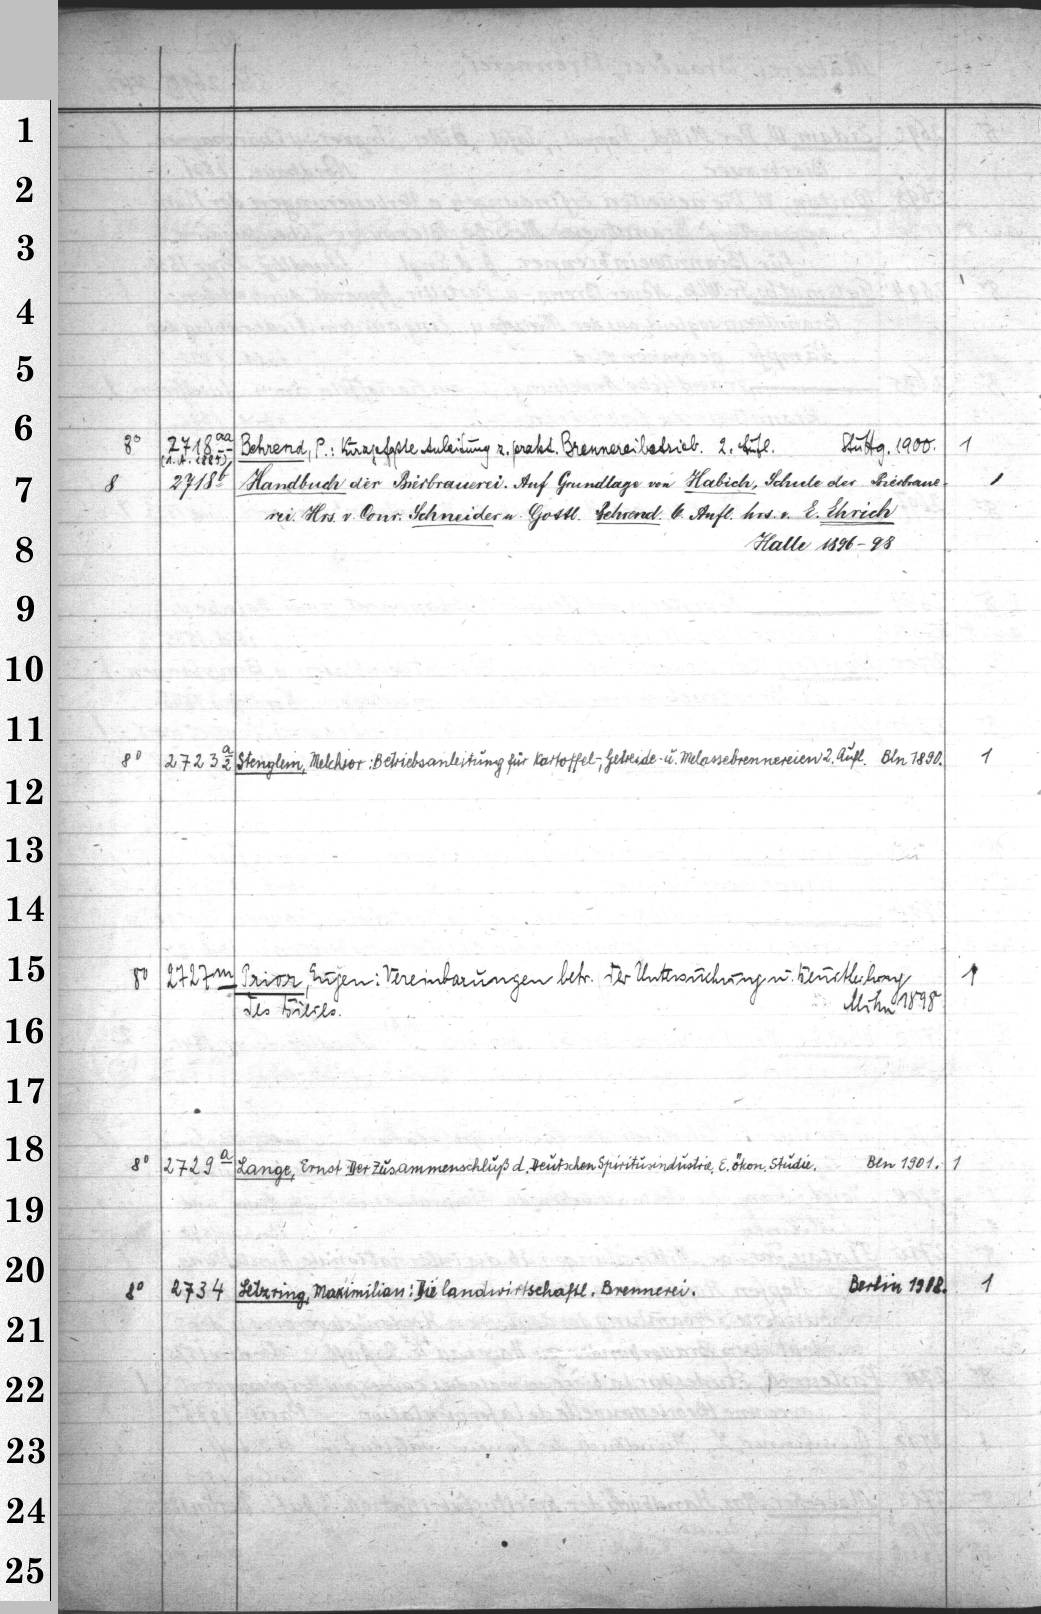 1
2
3
4
5
6
8° 2718aa Behrend, P.: Kurzgefaßte Anleitung z. prakt. Brennereibetrieb. 2. Aufl. Stuttg. 1900. 1
7
8 2718b Handbuch der Bierbrauerei. Auf Grundlage von Habich, Schule der Bierbraue-
rei. Hrs. v. Conr. Schneider u. Gottl. Behrend. 6. Aufl. hrs. v. E. Ehrich
8
Halle 1896-98
9
10
11
8° 2723 a/2 Stenglein, Melchior: Betriebsanleitung für Kartoffel-, Getreide- u. Melassebrennereien 2. Aufl. Bln 1890. 1
12
13
14
15
8° 2727m Prior, Eugen: Vereinbarungen betr. der Untersuchung u. 1
des Bieres. 1898
16
17
18
8° 2729a Lange, Ernst Der Zusammenschluß d. Deutschen Spiritusindustrie. E. ökon. Studie. Bln 1901. 1
19
20
8° 2734 Maximilian: Die landwirtschaftl. Brennerei. Berlin 1
21
22
23
24
25